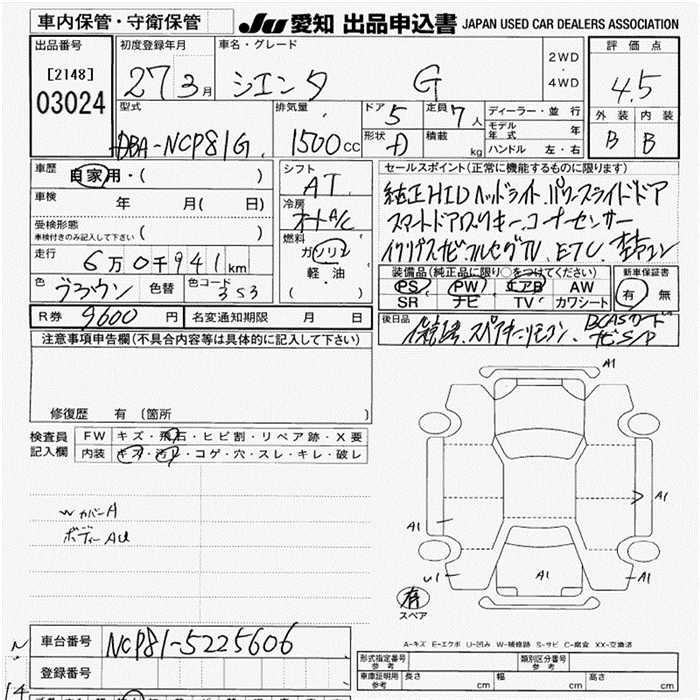 車内保管・守衛保管
JU 愛知 出品申込書 JAPAN USED CAR DEALERS ASSOCIATION
出品番号
[2148]
03024
初度登録年月
27 3月
車名・グレード
シエンタ G
2WD
・
4WD
評価点
4.5
外装 内装
B B
型式
DBA-NCP81G
排気量
1500cc
ドア 5
形状 D
定員 7人
積載 kg
ディーラー・並行
モデル年式 年
ハンドル 左・右
車歴 自家用・( )
車検 年 月( 日)
受検形態
車検付きのみ記入して下さい ( )
走行 6万0千941km
色 ブラウン 色替 色コード 3S3
シフト
AT
冷房
オートA/C
燃料
ガソリン
軽・油
( )
セールスポイント(正常に機能するものに限ります)
純正HIDヘッドライト.パワースライドドア
スマートドアスリキー.コーナーセンサー
フルセグTV.ETC.
装備品(純正品に限り○をつけてください)
PS PW エアB AW
SR ナビ TV カワシート
新車保証書
有・無
R券 9600円 名変通知期限 月 日
後日品
保証書.スペアキー.リモコン BCASカード
ナビSD
注意事項申告欄(不具合内容等は具体的に記入して下さい)
修復歴 有 (箇所 )
検査員
記入欄
FW キズ・飛石・ヒビ割・リペア跡・X要
内装 キズ・汚れ・コゲ・穴・スレ・キレ・破レ
Wカバー A
ボディー AU
A1
A1
A1
U1
A1
A1
有
スペア
A-キズ E-エクボ U-凹み W-補修跡 S-サビ C-腐食 XX-交換済
車台番号 NCP81-5225606
登録番号
形式指定番号
参考
類別区分番号
参考
車庫証明用
参考
長さ cm 幅 cm 高さ cm
N
14